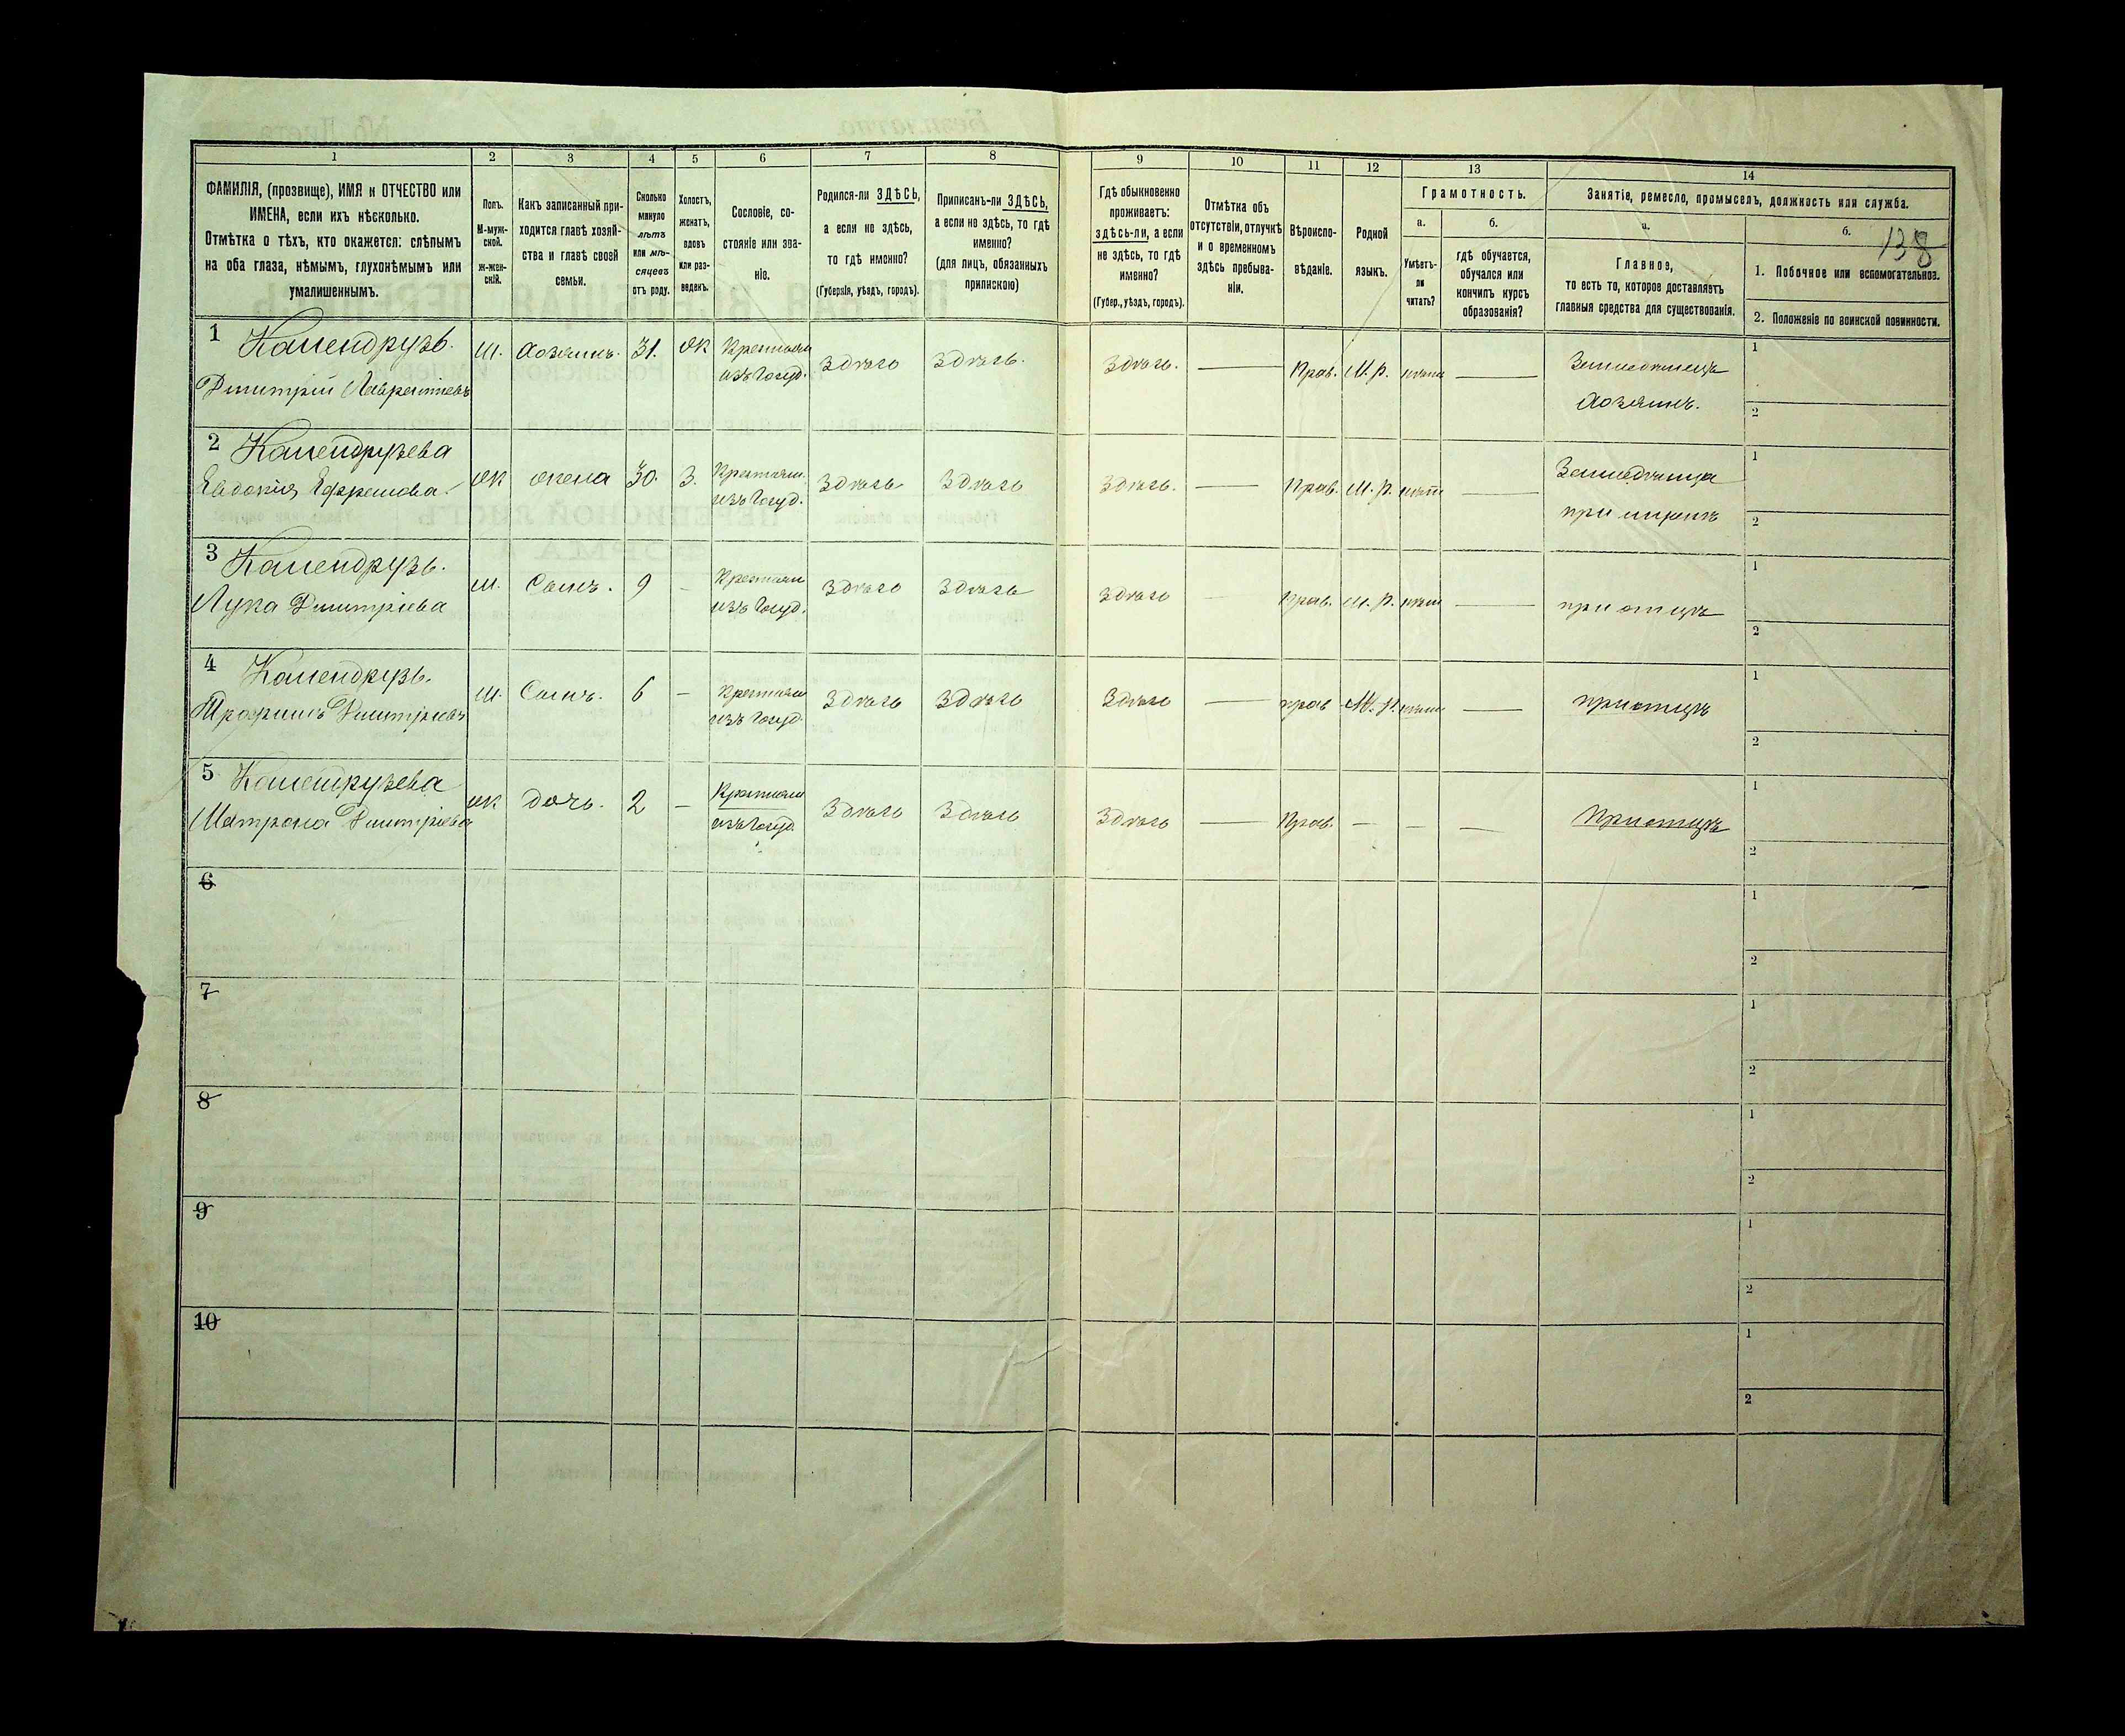 138
1 2 3 4 5 6 7 8 9 10 11 12 13 14
ФАМИЛІЯ, (прозвище), ИМЯ и ОТЧЕСТВО или
ИМЕНА, если ихъ нѣсколько.
Отмѣтка о тѣхъ, кто окажется: слѣпымъ
на оба глаза, нѣмымъ, глухонѣмымъ или
умалишеннымъ.
Полъ.
М-муж-
ской.
ж-жен-
скій.
Какъ записанный при-
ходится главѣ хозяй-
ства и главѣ своей
семьи.
Сколько
минуло
лѣтъ
или мѣ-
сяцевъ
отъ роду.
Холостъ,
женатъ,
вдовъ
или раз-
веденъ.
Сословіе, со-
стояніе или зва-
ніе.
Родился-ли ЗДѢСЬ,
а если не здѣсь,
то гдѣ именно?
(Губернія, уѣздъ, городъ).
Приписанъ-ли ЗДѢСЬ,
а если не здѣсь, то гдѣ
именно?
(для лицъ, обязанныхъ
припискою)
Гдѣ обыкновенно
проживаетъ:
здѣсь-ли, а если
не здѣсь, то гдѣ
именно?
(Губер., уѣздъ, городъ).
Отмѣтка объ
отсутствіи, отлучкѣ
и о временномъ
здѣсь пребыва-
ніи.
Вѣроиспо-
вѣданіе.
Родной
языкъ.
Грамотность.
а.
Умѣетъ-
ли
читать?
б.
гдѣ обучается,
обучался или
кончилъ курсъ
образованія?
Занятіе, ремесло, промыселъ, должность или служба.
а.
Главное,
то есть то, которое доставляетъ
главныя средства для существованія.
б.
1. Побочное или вспомогательное.
2. Положеніе по воинской повинности.
1 м. Хозяинъ. 31. Ж Крестьян здѣсь здѣсь. здѣсь. — Прав. М. р. нѣтъ — 1
Дмитрій Лаврентіевъ изъ госуд. Хозяинъ. 2
2 ж жена 30. З. Крестьян. здѣсь здѣсь здѣсь. — Прав. М. р. нѣтъ — 1
Евдокія Ефремова. изъ госуд. при мужѣ 2
3 м. Сынъ. 9 - Крестьян здѣсь здѣсь здѣсь — Прав. М. р. нѣтъ — при отцѣ 1
Лука Дмитріева изъ госуд. 2
4 м. Сынъ. 6 - Крестьян здѣсь здѣсь здѣсь — прав М. р. нѣтъ — при отцѣ 1
Трофимъ Дмитріевъ изъ госуд. 2
5 ж дочь. 2 - Крестьян здѣсь здѣсь здѣсь — Прав. - - - При отцѣ 1
Матрона Дмитріева изъ госуд. 2
6 1
2
7 1
2
8 1
2
9 1
2
10 1
2